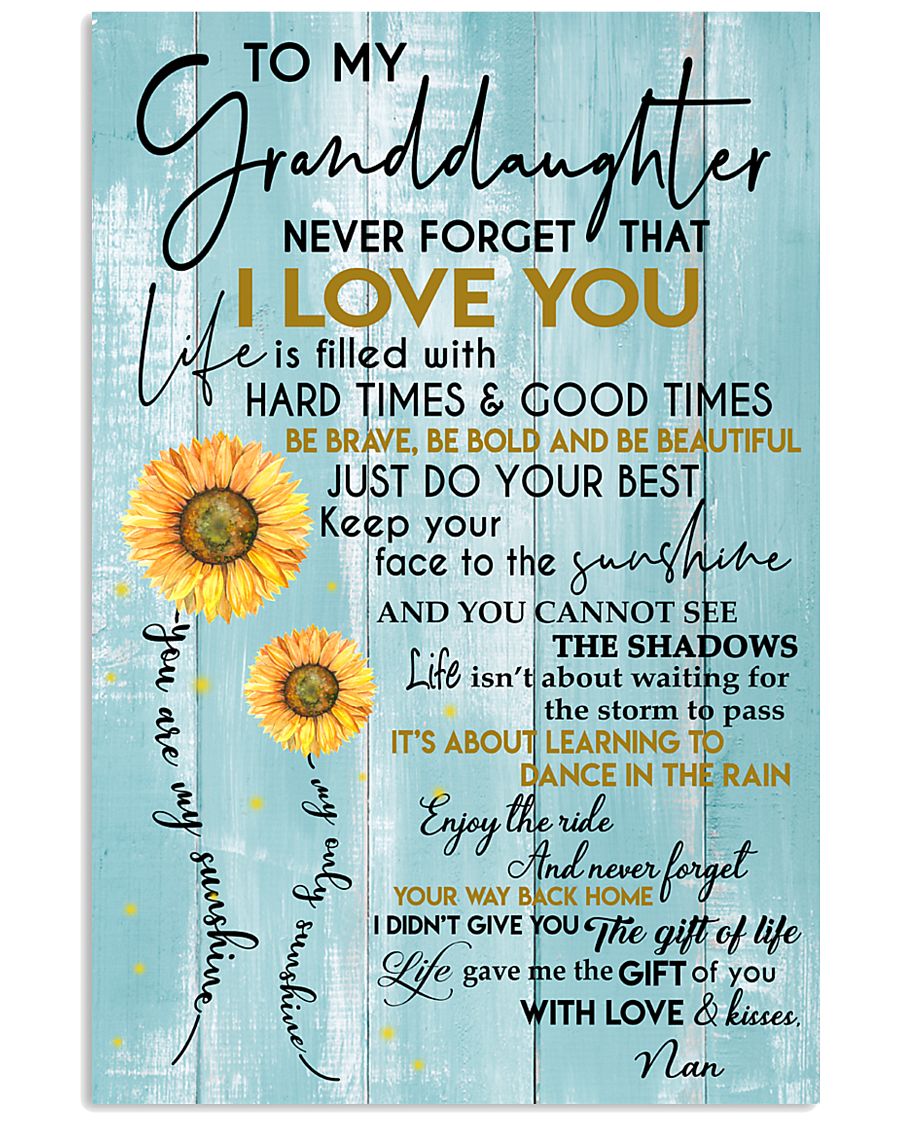 TO MY
Granddaughter
NEVER FORGET THAT
I LOVE YOU
Life is filled with
HARD TIMES & GOOD TIMES
BE BRAVE, BE BOLD AND BE BEAUTIFUL
JUST DO YOUR BEST
Keep your
face to the sunshine
AND YOU CANNOT SEE
THE SHADOWS
Life isn't about waiting for
the storm to pass
IT'S ABOUT LEARNING TO
DANCE IN THE RAIN
Enjoy the ride
And never forget
YOUR WAY BACK HOME
I DIDN'T GIVE YOU The gift of life
Life gave me the GIFT of you
WITH LOVE & kisses,
Nan
you are my sunshine
my only sunshine